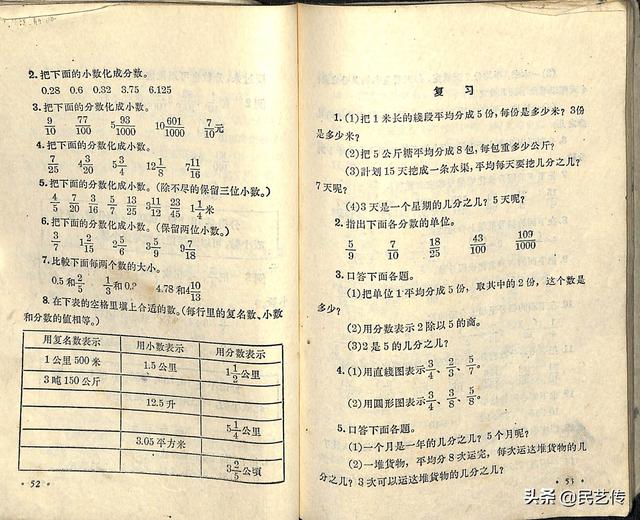 2.把下面的小数化成分数。
0.28 0.6 0.32 3.75 6.125
3.把下面的分数化成小数。
9/10 77/100 5 93/1000 10 601/1000 7/10元
4.把下面的分数化成小数。
7/25 4 3/20 5 3/4 12 1/8 7 11/16
5.把下面的分数化成小数。(除不尽的保留三位小数。)
4/5 7/20 3/16 5/7 13/25 3 11/12 23/45 1 1/4米
6.把下面的分数化成小数。(保留两位小数。)
3/7 1 2/15 2 5/6 3 5/9 9 7/18
7.比較下面每两个数的大小。
0.5和2/5 1/3和0.3 4.78和4 10/13
8.在下表的空格里填上合适的数。(每行里的复名数、小数
和分数的值相等。)
用复名数表示 用小数表示 用分数表示
1公里500米 1.5公里 1 1/2公里
3吨150公斤
12.5升
5 1/4公里
3.05平方米
3 2/5公頃
·52·
复 习
1.(1)把1米长的綫段平均分成5份,每份是多少米?3份
是多少米?
(2)把5公斤糖平均分成8包,每包重多少公斤?
(3)計划15天挖成一条水渠,平均每天要挖几分之几?
7天呢?
(4)3天是一个星期的几分之几?5天呢?
2.指出下面各分数的单位。
5/9 7/10 18/25 43/100 109/1000
3.口答下面各题。
(1)把单位1平均分成5份,取其中的2份,这个数是
多少?
(2)用分数表示2除以5的商。
(3)2是5的几分之几?
4.(1)用直线图表示3/4、2/3、5/7。
(2)用圆形图表示3/4、3/8、5/8。
5.口答下面各题。
(1)一个月是一年的几分之几?5个月呢?
(2)一堆貨物,平均分8次运完,每次运这堆貨物的几
分之几?3次可以运这堆貨物的几分之几?
·53·
头条 @民艺传